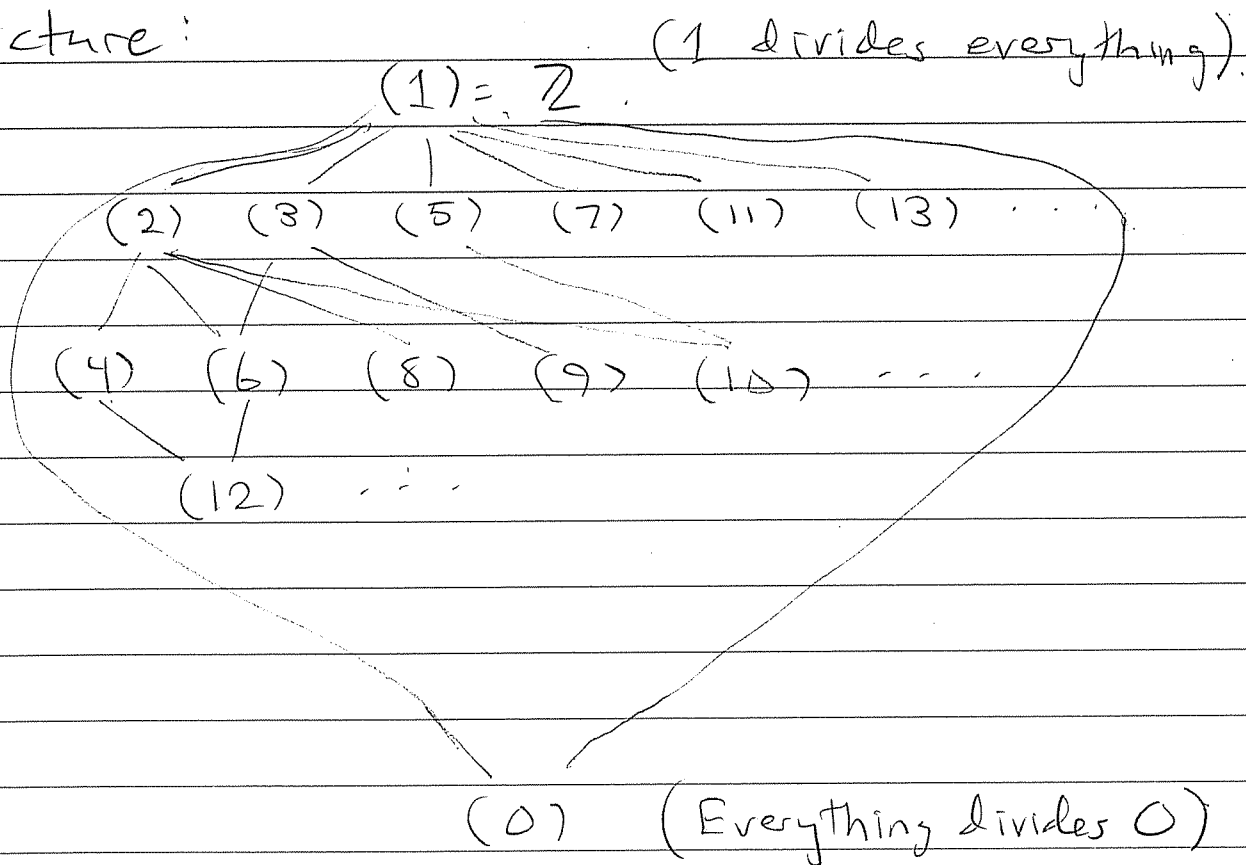 cture: (1 divides everything).
(1) = ℤ.
(2) (3) (5) (7) (11) (13) ....
(4) (6) (8) (9) (10) ....
(12) ...
(0) (Everything divides 0)